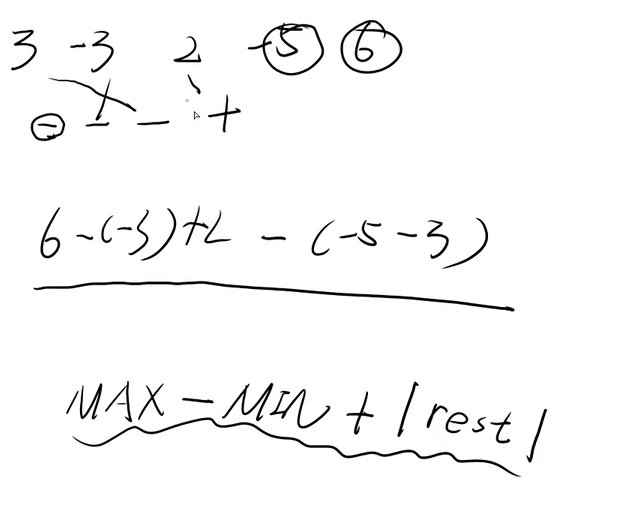 3 -3 2 -5 6
- - - +
6-(-3)+2 - (-5-3)
MAX - MIN + |rest|